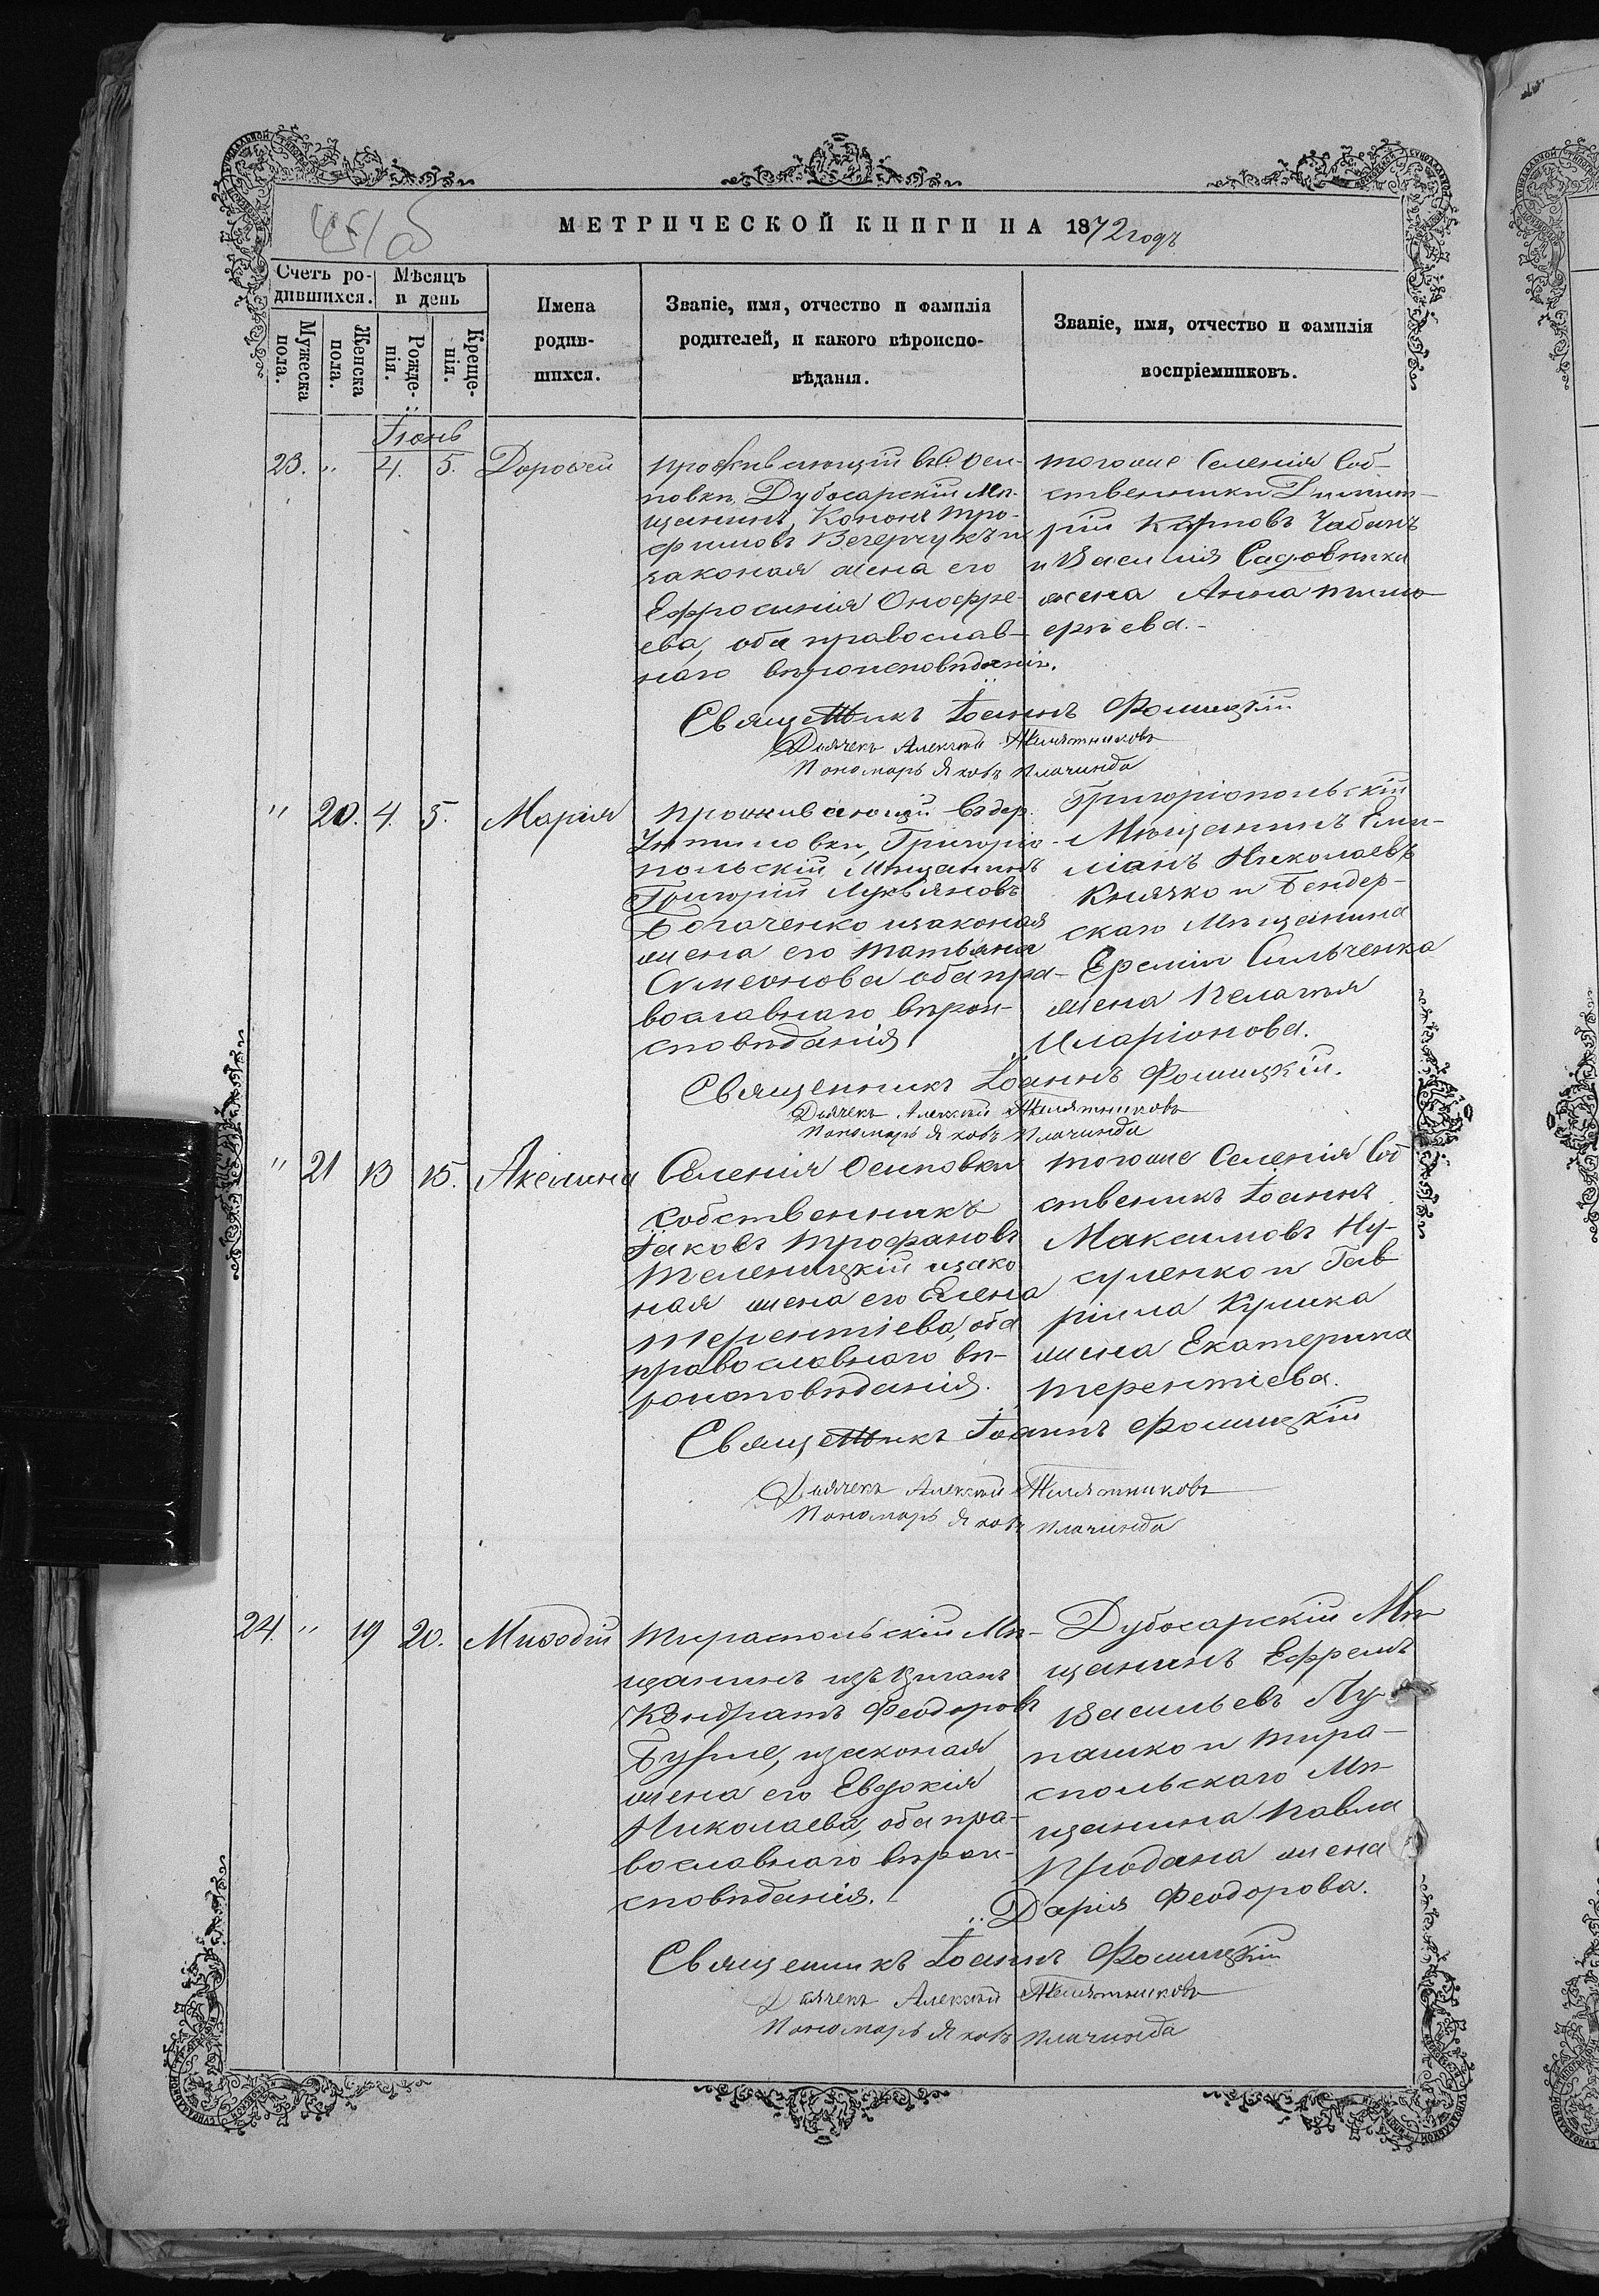 МЕТРИЧЕСКОЙ КНИГИ НА 1872 годъ
Счетъ ро-
дившихся.
Мѣсяцъ
и день
Мужеска
пола.
Женска
пола.
Рожде-
нія.
Креще-
нія.
Имена
родив-
шихся.
Званіе, имя, отчество и фамилія
родителей, и какого вѣроиспо-
вѣданія.
Званіе, имя, отчество и фамилія
воспріемниковъ.
Іюнь
23. " 4. 5. Дороѳей
проживающій въ С. Оси-
повки, Дубосарскій Мѣ-
щанинъ, Кононъ Тро-
фимовъ Вечерчукъ и
законая жена его
Ефросинія Онофре-
ева, оба православ-
наго вѣроисповѣданія.
тогоже Селенія Соб-
ственники Димит-
рій Карповъ Чабанъ
и Василія Садовника
жена Анна Тимо-
ерѣева.
Священникъ Іоаннъ Фомицкій
Дьячекъ Алексѣй Телятниковъ
Пономарь Яковъ Плачинда
" 20. 4. 5. Марія
проживающій въ дер.
Григоріо-
польскій Мѣщанинъ
Григорій Лукьяновъ
Богаченко изаконая
жена его Татьяна
Симеонова оба пра-
вославнаго вѣрои-
сповѣданія
Григоріопольскій
Мѣщанинъ Еми-
ліанъ Николаевъ
Княжко и Бендер-
скаго Мѣщанина
Еремія Сильченка
жена Пелагія
Иларіонова.
Священникъ Іоаннъ Фомицкій.
Дьячекъ Алексѣй Телятниковъ
Пономарь Яковъ Плачинда
" 21 13 15. Акелина
Селенія Осиповки
Собственникъ
Іаковъ Трофановъ
Теленицкій изако
ная жена его Елена
Терентіева, оба
православнаго вѣ-
роисповѣданія.
тогоже Селенія Соб
ственикъ Іоаннъ
Максимовъ Ну-
суленко и Гав
ріила Кулика
жена Екатерина
Терентіева.
Священникъ Іоаннъ Фомицкій
Дьячекъ Алексѣй Телятниковъ
Пономарь Яковъ Плачинда
24. " 19 20. Миѳодій
Тираспольскій Мѣ-
щанинъ изъ Циганъ
Кондратъ Феодоровъ
изаконая
жена его Евдокія
Николаева, оба пра-
вославнаго вѣрои-
сповѣданія.
Дубосарскій Мѣ-
щанинъ Ефремъ
Васильевъ Лу-
пашко и Тира-
спольскаго Мѣ-
щанина Павла
Продана жена
Дарія Феодорова.
Священникъ Іоаннъ Фомицкій
Дьячекъ Алексѣй Телятниковъ
Пономарь Яковъ Плачинда